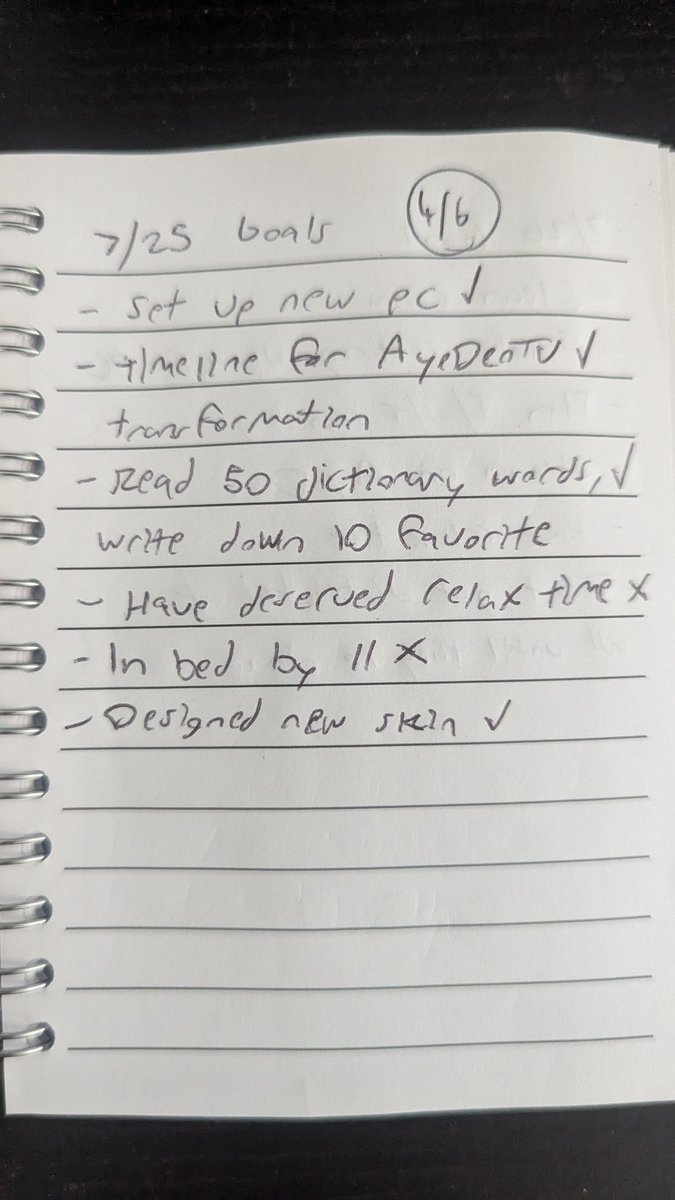 7/25 Goals 4/6
- Set up new PC ✓
- Timeline for AyeDenTV ✓
transformation
- Read 50 dictionary words, ✓
write down 10 favorite
- Have deserved relax time x
- In bed by 11 x
- Designed new skin ✓